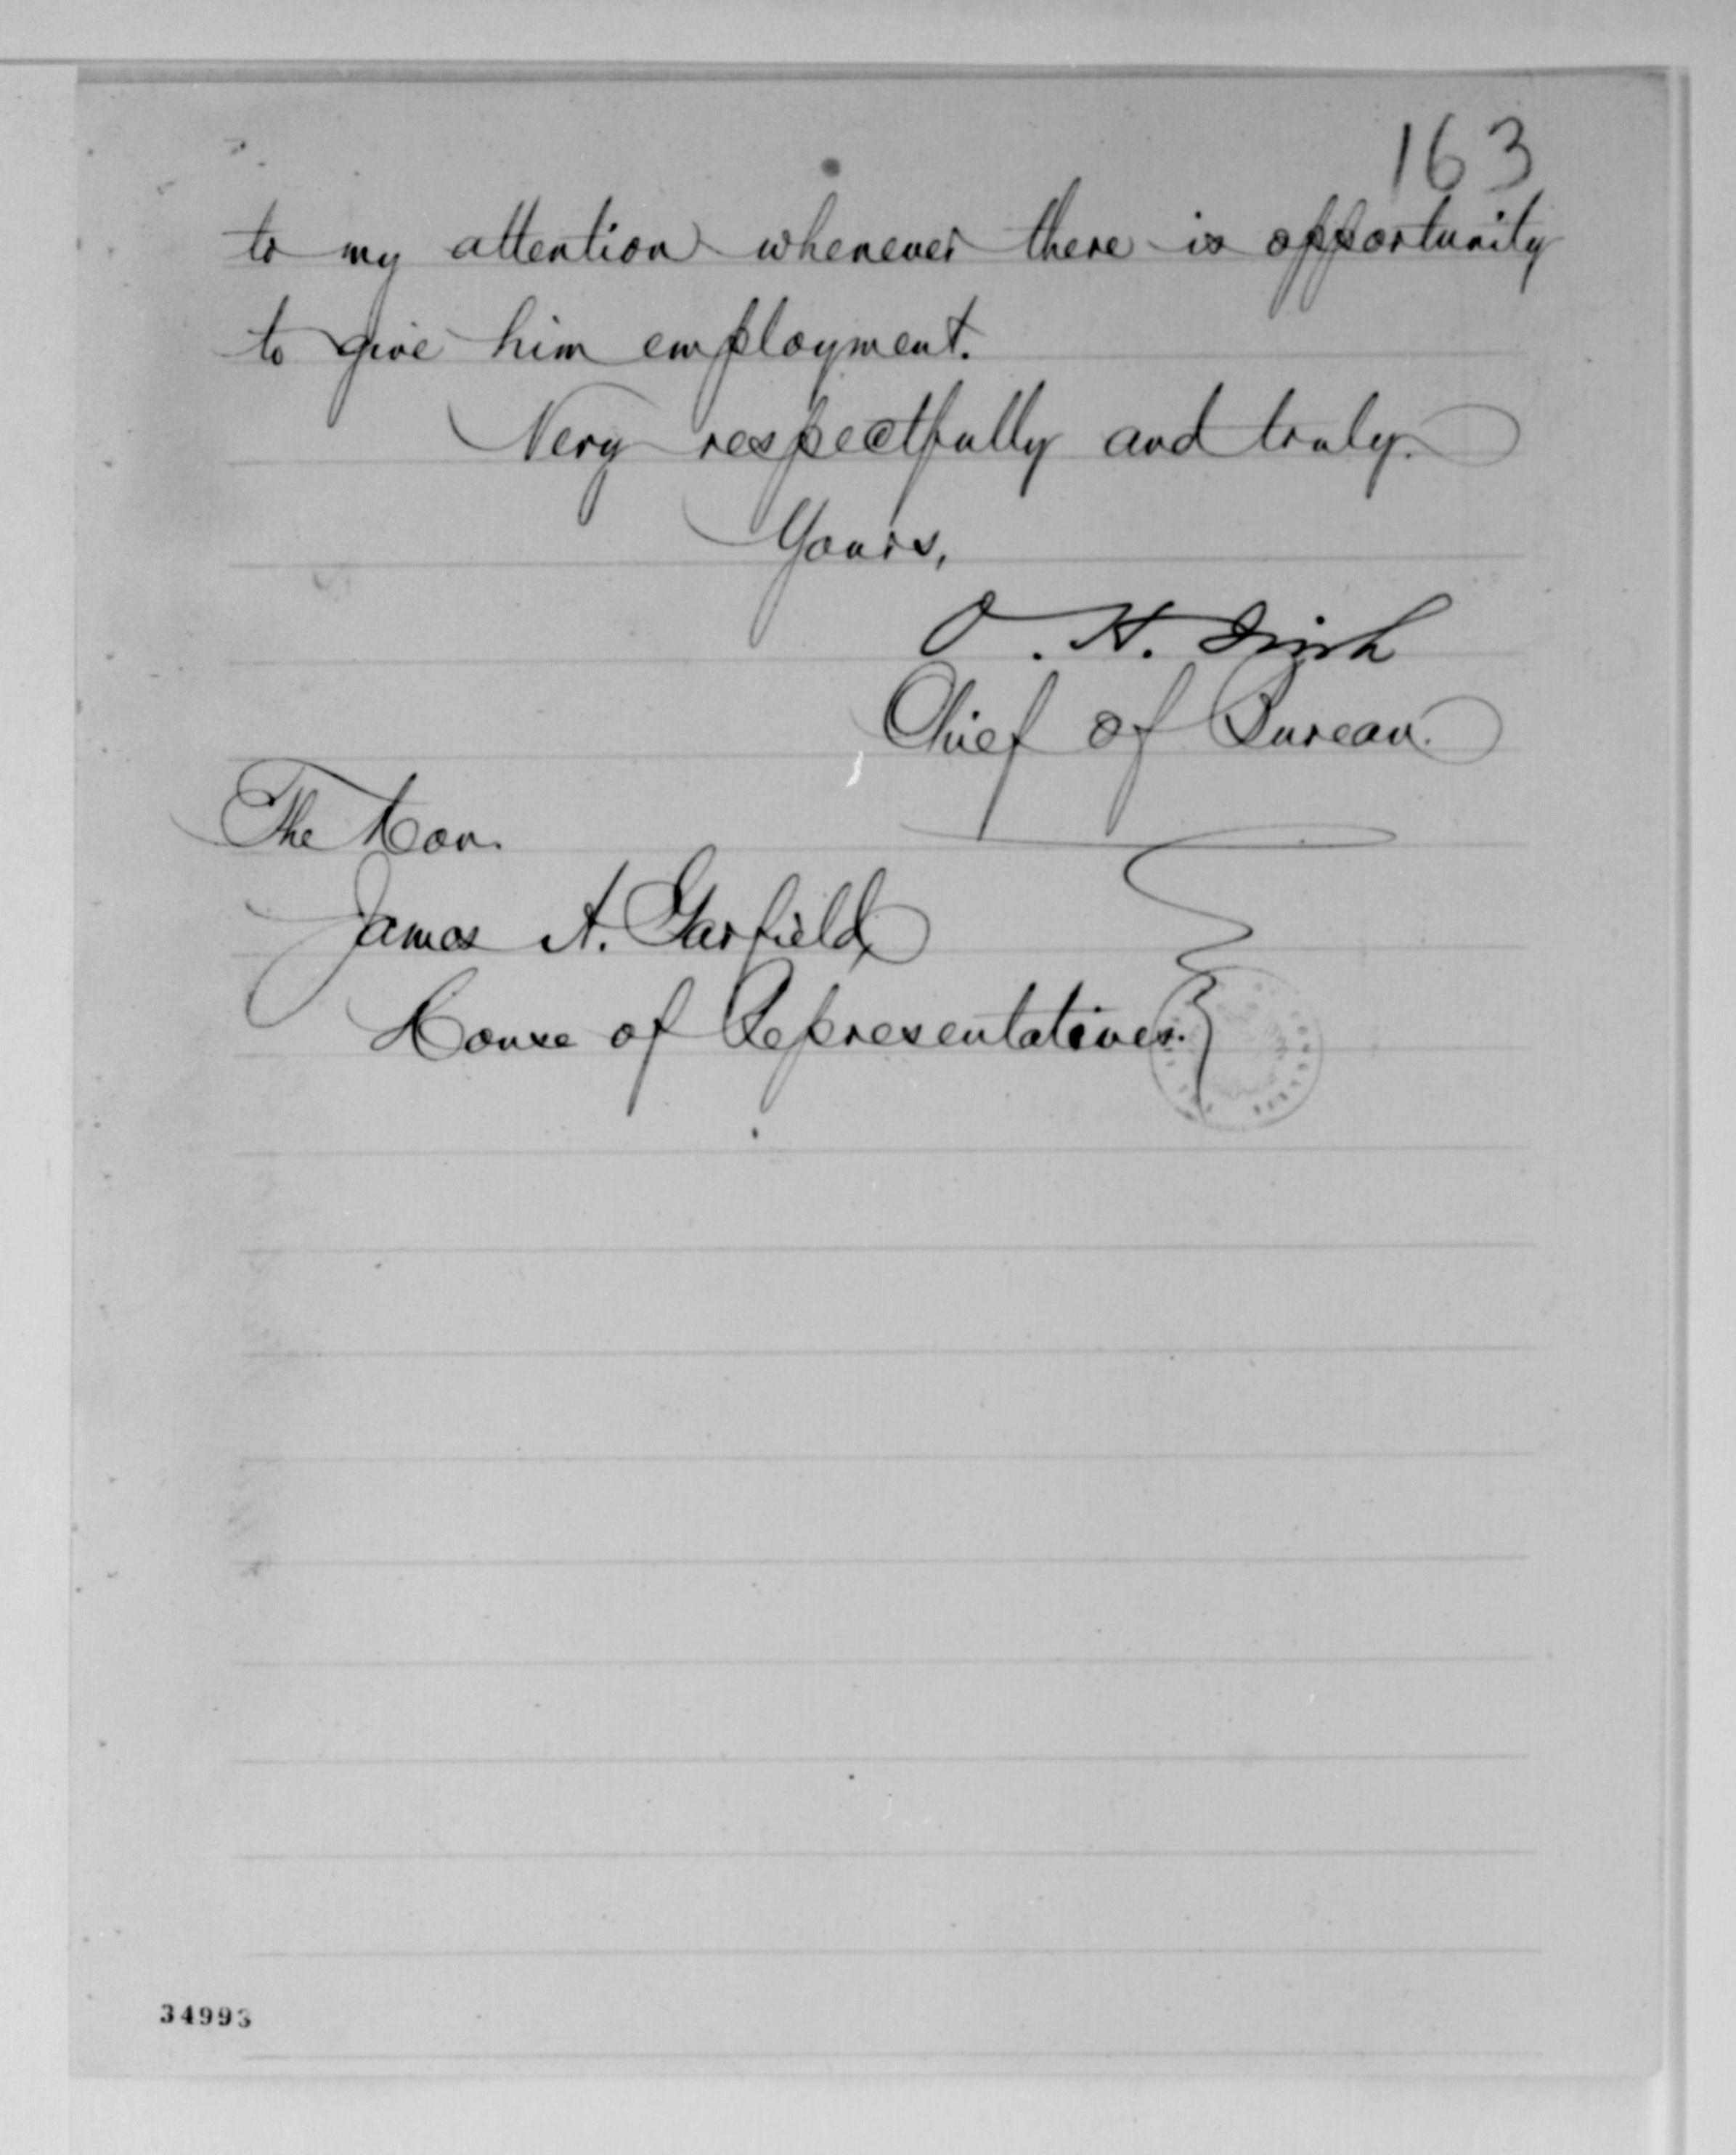 163
to my attention whenever there is opportunity
to give him employment.
Very respectfully and truly.
Yours,
O. H. Irish
Chief of Bureau.
The Hon.
James A. Garfield,
House of Representatives.
34993